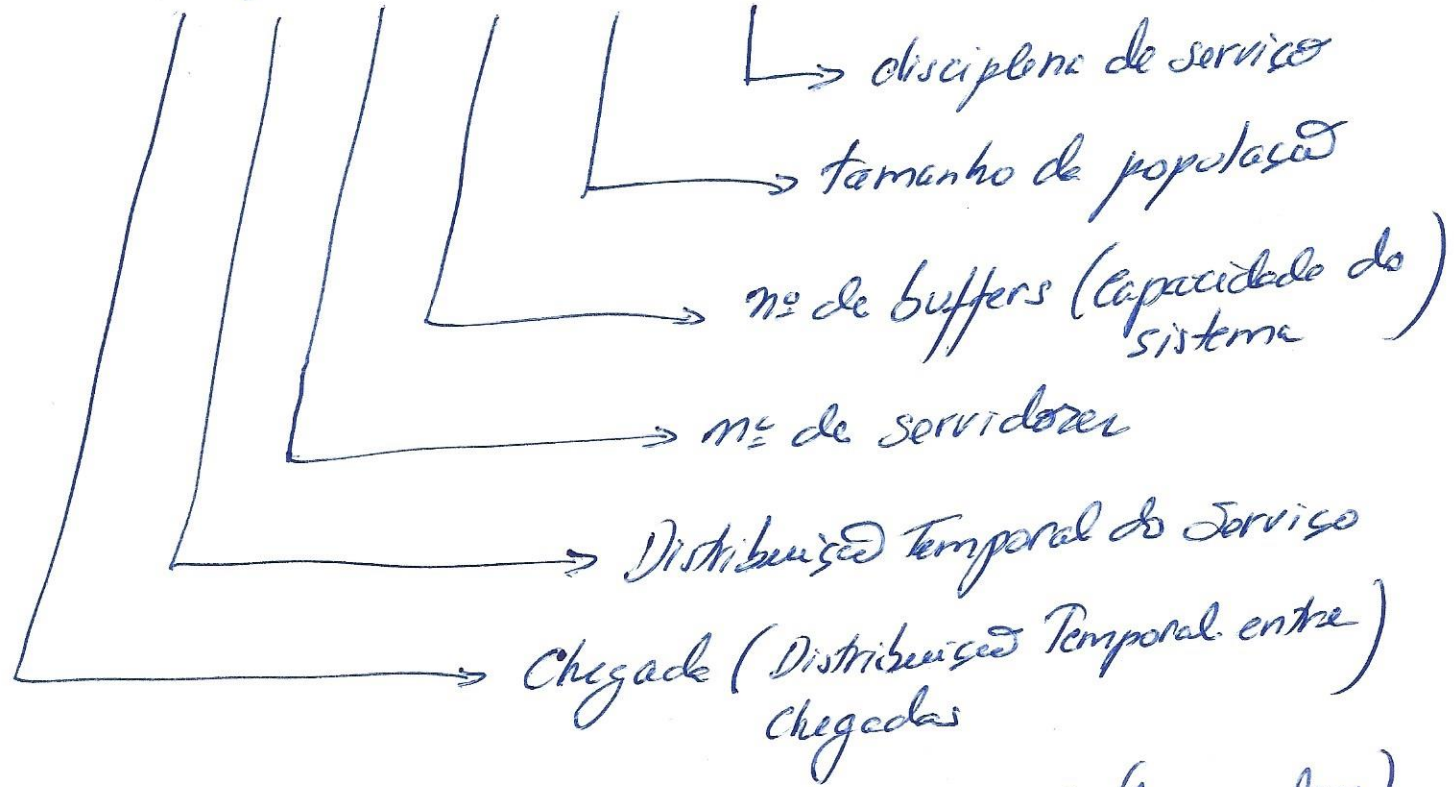 disciplina de serviço
tamanho da população
nº de buffers (Capacidade do
sistema)
nº de servidores
Distribuição Temporal do Serviço
Chegada (Distribuição Temporal entre
chegadas)